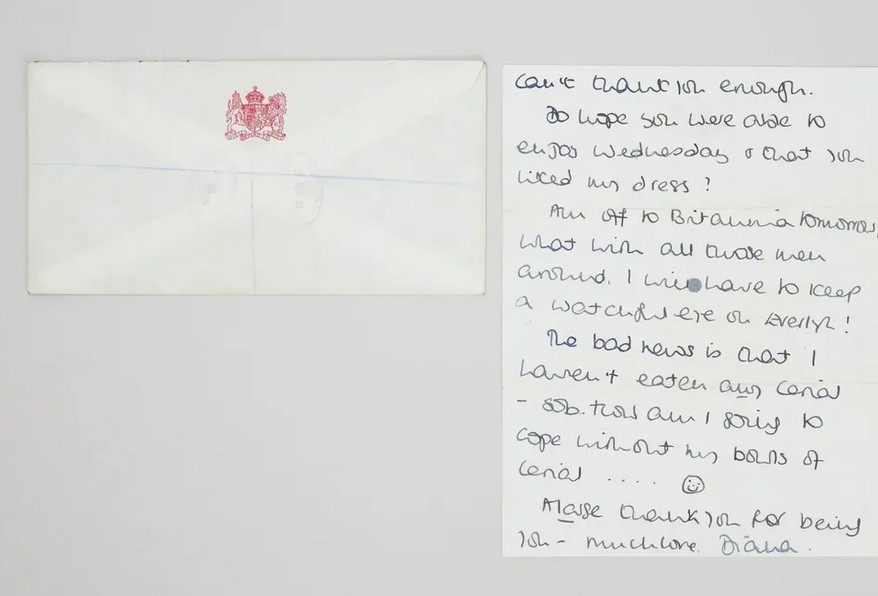 can't thank you enough.
Do hope you were able to
enjoy Wednesday & that you
liked my dress?
Am off to Britannia tomorrow,
what with all those men
around. I will have to keep
a watchful eye on Evelyn!
The bad news is that I
haven't eaten any cerial
- sob. How am I going to
cope without my bowls of
cerial .... ☺
A large thank you for being
you - much love Diana.